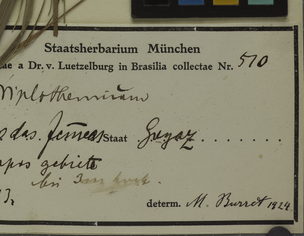 Staatsherbarium München
ae a Dr. v. Luetzelburg in Brasilia collectae Nr. 510
Diplothemium
das. Staat Goyaz
gebiete
bei
determ. M. Burret 1924